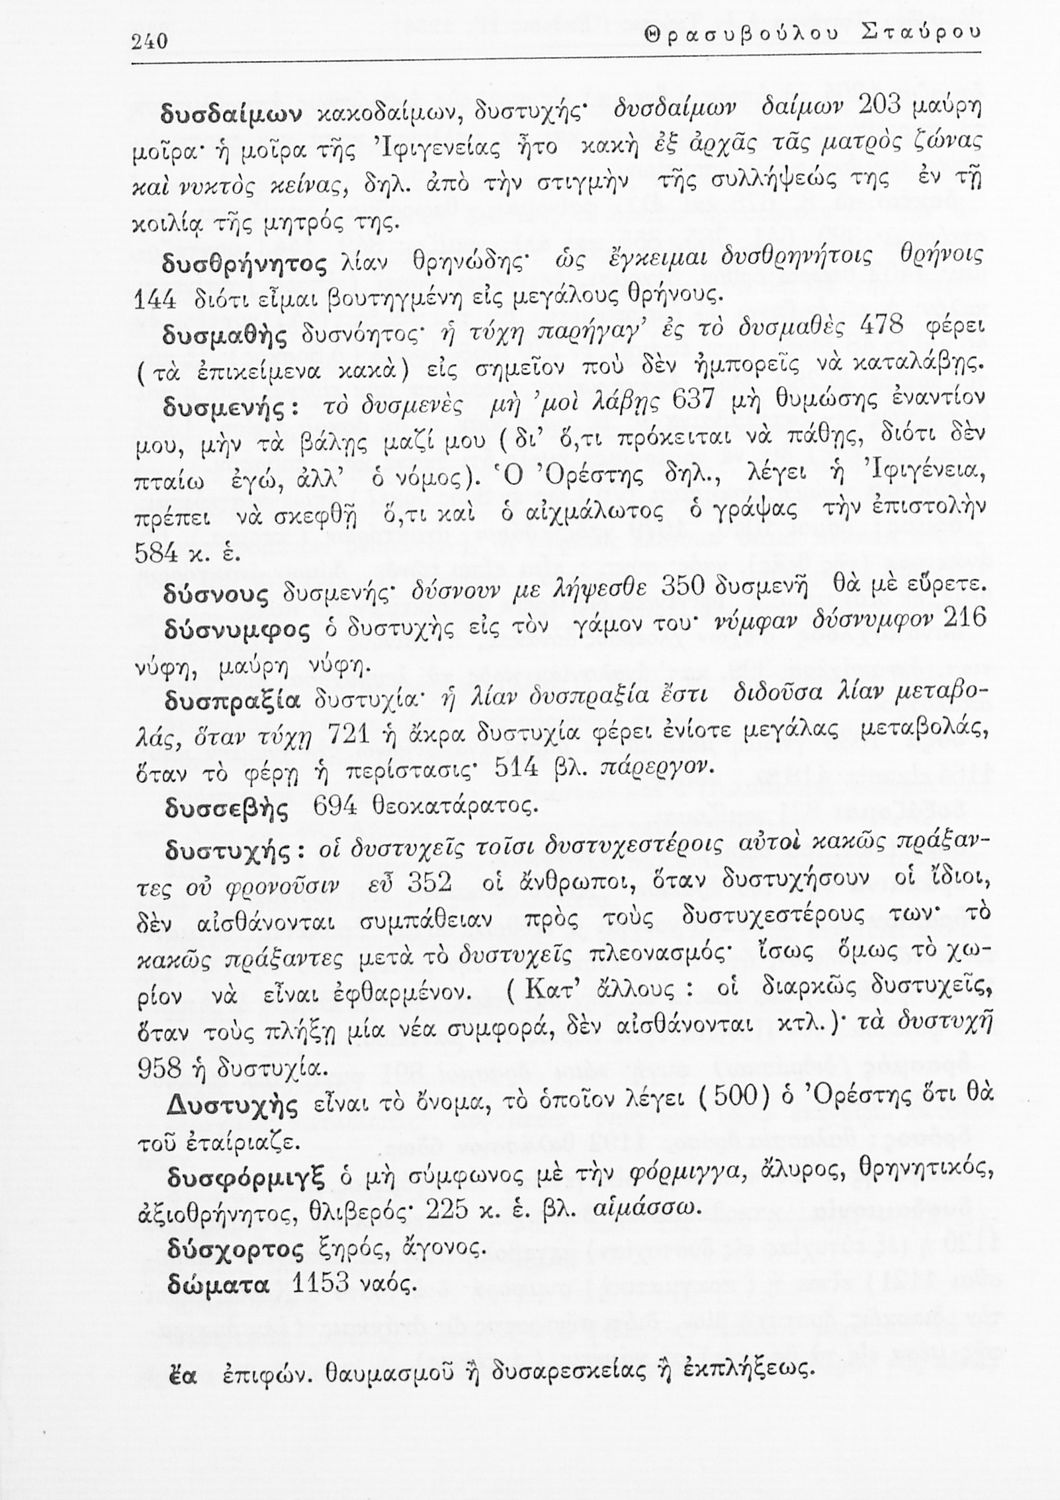 240
Θρασυβούλου Σταύρου
δυσδαίμων κακοδαίμων, δυστυχής· δυσδαίμων δαίμων 203 μαύρη
μοῖρα· ἡ μοῖρα τῆς Ἰφιγενείας ἦτο κακὴ ἐξ ἀρχᾶς τᾶς ματρὸς ζώνας
καὶ νυκτὸς κείνας, δηλ. ἀπὸ τὴν στιγμὴν τῆς συλλήψεώς της ἐν τῇ
κοιλίᾳ τῆς μητρός της.
δυσθρήνητος λίαν θρηνώδης· ὡς ἔγκειμαι δυσθρηνήτοις θρήνοις
144 διότι εἶμαι βουτηγμένη εἰς μεγάλους θρήνους.
δυσμαθὴς δυσνόητος· ἡ τύχη παρήγαγ’ ἐς τὸ δυσμαθὲς 478 φέρει
(τὰ ἐπικείμενα κακὰ) εἰς σημεῖον ποὺ δὲν ἠμπορεῖς νὰ καταλάβῃς.
δυσμενής: τὸ δυσμενὲς μὴ ’μοὶ λάβῃς 637 μὴ θυμώσῃς ἐναντίον
μου, μὴν τὰ βάλῃς μαζί μου (δι’ ὅ,τι πρόκειται νὰ πάθῃς, διότι δὲν
πταίω ἐγώ, ἀλλ’ ὁ νόμος). Ὁ Ὀρέστης δηλ., λέγει ἡ Ἰφιγένεια,
πρέπει νὰ σκεφθῇ ὅ,τι καὶ ὁ αἰχμάλωτος ὁ γράψας τὴν ἐπιστολὴν
584 κ. ἑ.
δύσνους δυσμενής· δύσνουν με λήψεσθε 350 δυσμενῆ θὰ μὲ εὕρετε.
δύσνυμφος ὁ δυστυχὴς εἰς τὸν γάμον του· νύμφαν δύσνυμφον 216
νύφη, μαύρη νύφη.
δυσπραξία δυστυχία· ἡ λίαν δυσπραξία ἔστι διδοῦσα λίαν μεταβο-
λάς, ὅταν τύχῃ 721 ἡ ἄκρα δυστυχία φέρει ἐνίοτε μεγάλας μεταβολάς,
ὅταν τὸ φέρῃ ἡ περίστασις· 514 βλ. πάρεργον.
δυσσεβὴς 694 θεοκατάρατος.
δυστυχής: οἱ δυστυχεῖς τοῖσι δυστυχεστέροις αὐτοὶ κακῶς πράξαν-
τες οὐ φρονοῦσιν εὖ 352 οἱ ἄνθρωποι, ὅταν δυστυχήσουν οἱ ἴδιοι,
δὲν αἰσθάνονται συμπάθειαν πρὸς τοὺς δυστυχεστέρους των· τὸ
κακῶς πράξαντες μετὰ τὸ δυστυχεῖς πλεονασμός· ἴσως ὅμως τὸ χω-
ρίον νὰ εἶναι ἐφθαρμένον. (Κατ’ ἄλλους : οἱ διαρκῶς δυστυχεῖς,
ὅταν τοὺς πλήξῃ μία νέα συμφορά, δὲν αἰσθάνονται κτλ.)· τὰ δυστυχῆ
958 ἡ δυστυχία.
Δυστυχὴς εἶναι τὸ ὄνομα, τὸ ὁποῖον λέγει (500) ὁ Ὀρέστης ὅτι θὰ
τοῦ ἐταίριαζε.
δυσφόρμιγξ ὁ μὴ σύμφωνος μὲ τὴν φόρμιγγα, ἄλυρος, θρηνητικός,
ἀξιοθρήνητος, θλιβερός· 225 κ. ἑ. βλ. αἱμάσσω.
δύσχορτος ξηρός, ἄγονος.
δώματα 1153 ναός.
ἔα ἐπιφών. θαυμασμοῦ ἢ δυσαρεσκείας ἢ ἐκπλήξεως.